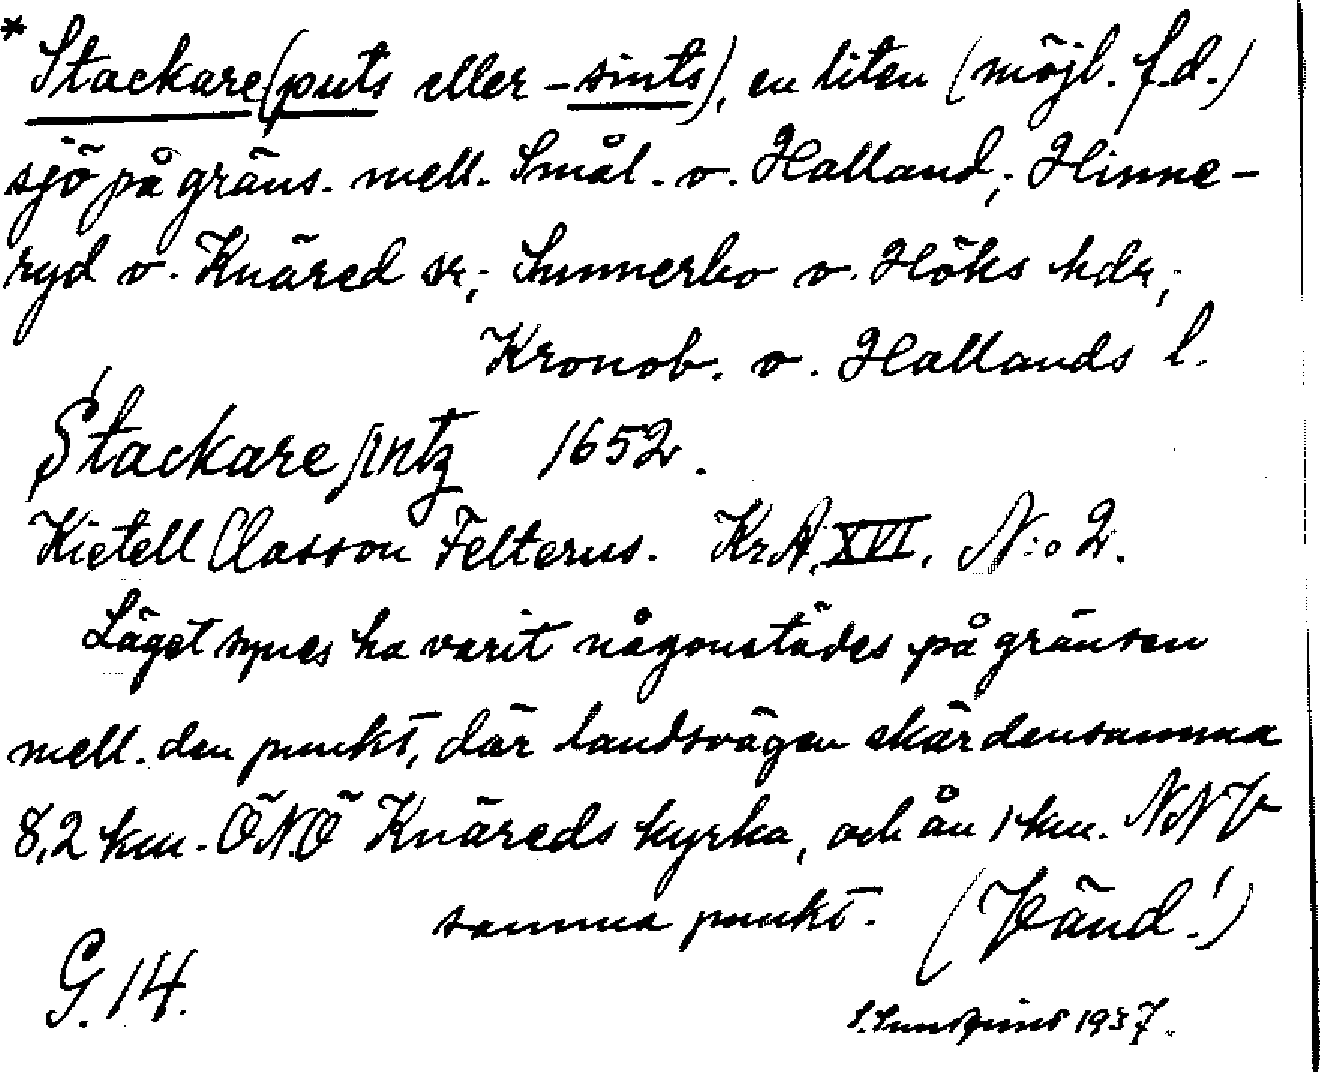 * Stackare(puts eller -sints), en liten (möjl. f.d.)
sjö på gräns. mell. Smål. o. Halland; Hinne-
ryd o. Knäred sr; Sunnerbo o. Höks hdr;
Kronob. o. Hallands l.
Stackare 1652.
Kietell Classon Felterus. KrA. XVI. N:o 2.
Läget synes ha varit någonstädes på gränsen
mell. den punkt, där landsvägen skär densamma
8,2 km. ÖNÖ Knäreds kyrka, och ån 1 km. NNV
samma punkt. (Vänd!)
G. 14.
1937.